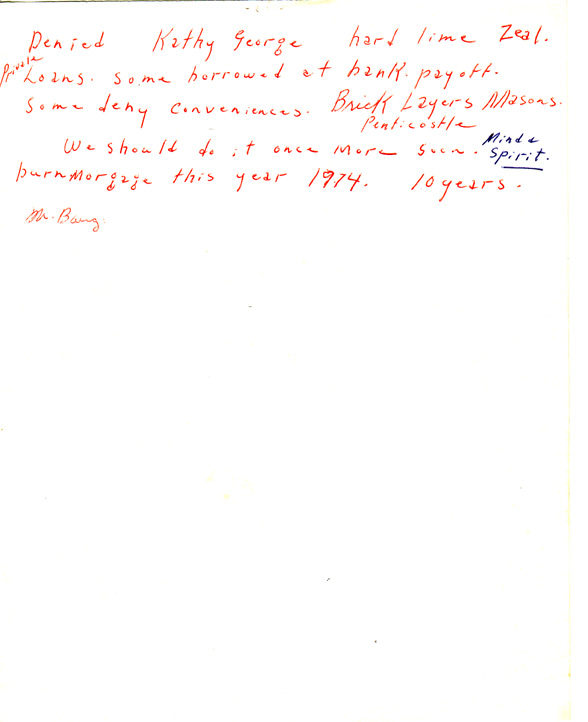 Denied Kathy George hard lime Zeal.
Private Loans. Some borrowed at bank. payoff.
Some deny conveniences. Brick Layers Masons.
Penticostle
We should do it once more soon. Mind & Spirit.
burn Morgage this year 1974. 10 years.
Mr. Bang.